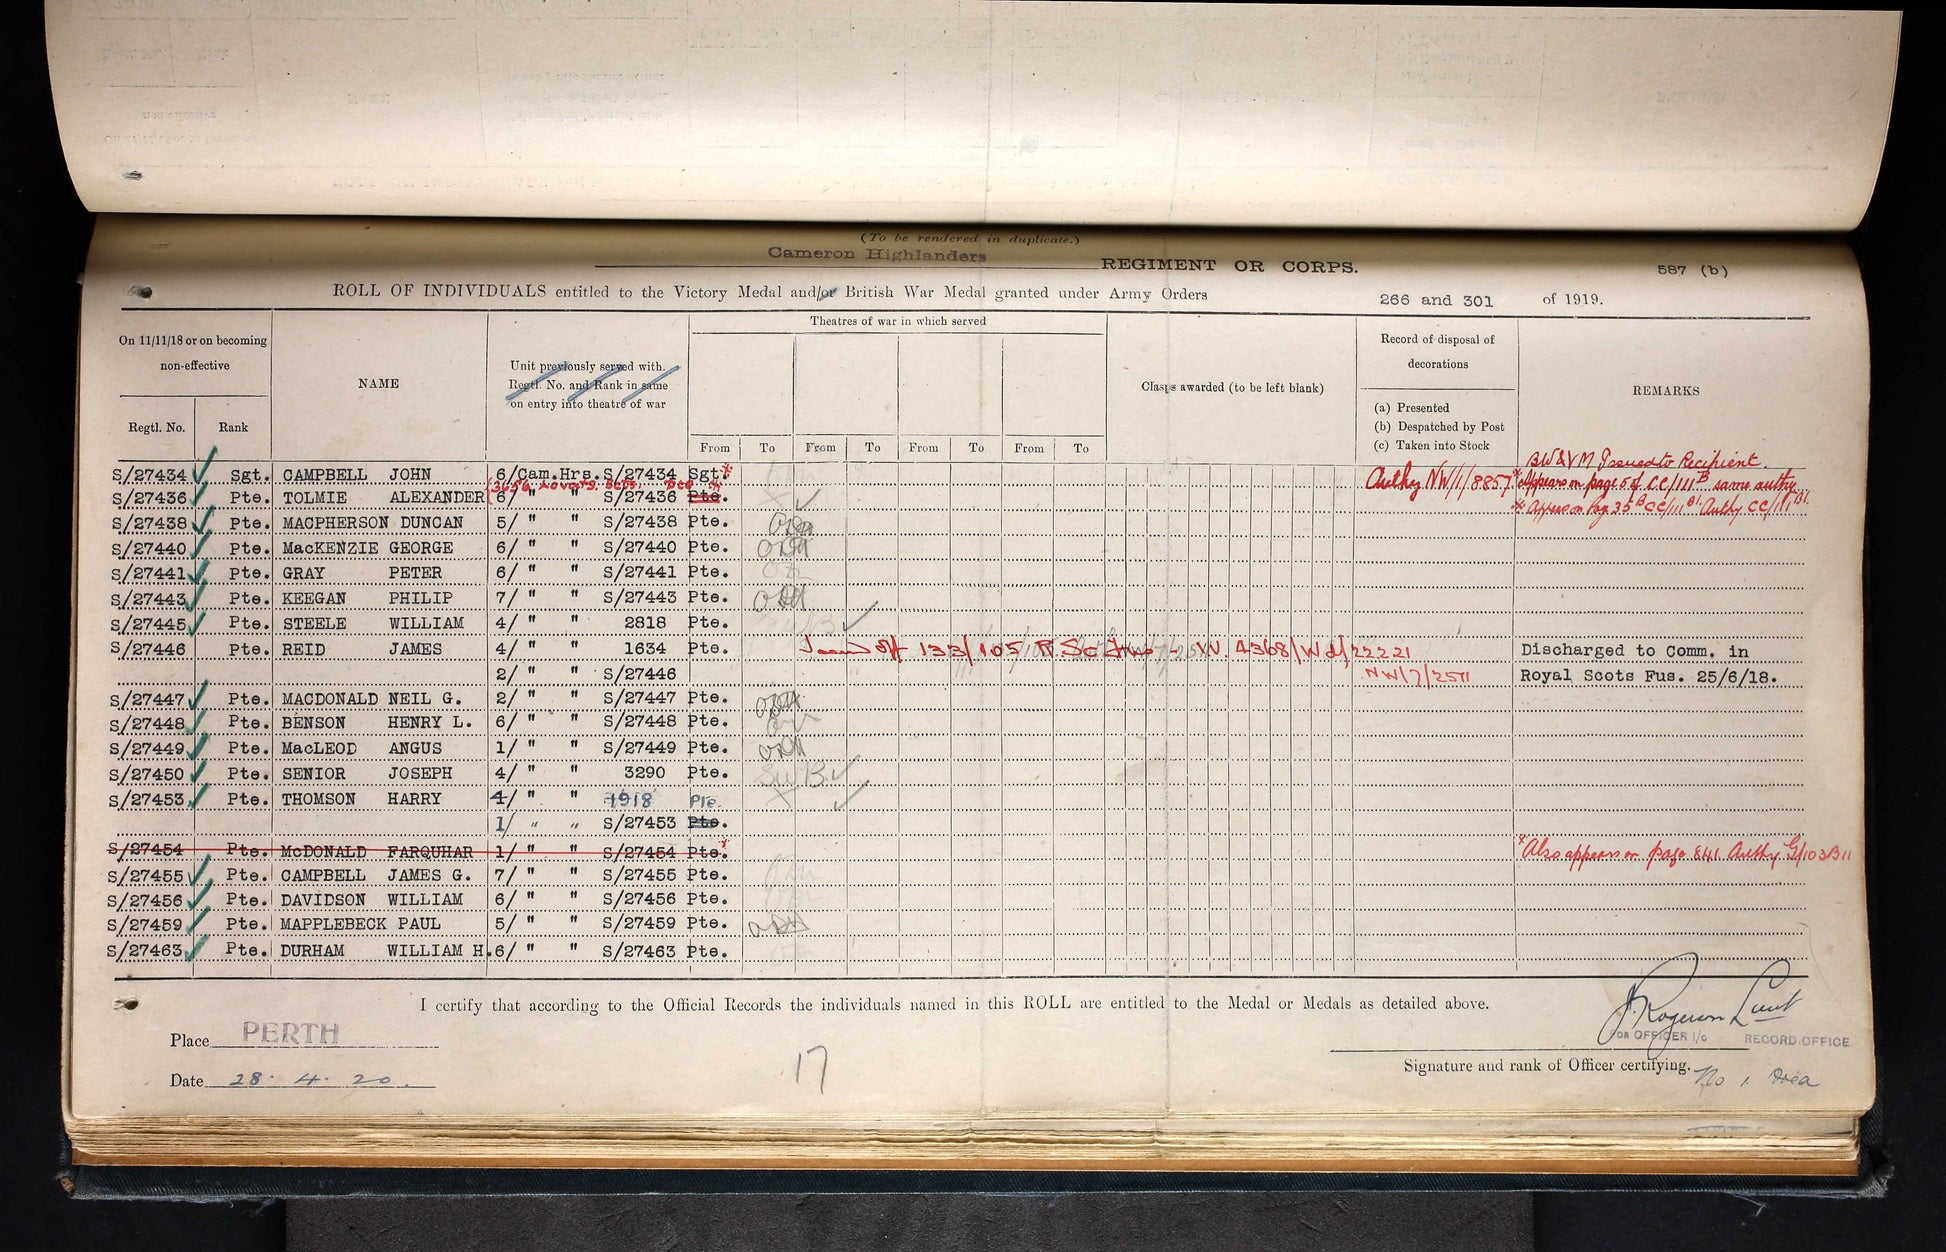 (To be rendered in duplicate.)
Cameron Highlanders REGIMENT OR CORPS. 587 (b)
ROLL OF INDIVIDUALS entitled to the Victory Medal and/or British War Medal granted under Army Orders 266 and 301 of 1919.
On 11/11/18 or on becoming non-effective
Regtl. No.
Rank
NAME
Unit previously served with.
Regtl. No. and Rank in same
on entry into theatre of war
Theatres of war in which served
From To From To From To From To
Clasps awarded (to be left blank)
Record of disposal of decorations
(a) Presented
(b) Despatched by Post
(c) Taken into Stock
REMARKS
BW&VM Issued to Recipient.
S/27434 Sgt. CAMPBELL JOHN 6/Cam.Hrs. S/27434 Sgt. Authy NW/1/8857 Appears on page 5 of CC/111B same authy
S/27436 Pte. TOLMIE ALEXANDER 6/ " " S/27436 Pte. Appears on Page 35B CC/111B1 Authy CC/111B1
S/27438 Pte. MACPHERSON DUNCAN 5/ " " S/27438 Pte.
S/27440 Pte. MacKENZIE GEORGE 6/ " " S/27440 Pte.
S/27441 Pte. GRAY PETER 6/ " " S/27441 Pte.
S/27443 Pte. KEEGAN PHILIP 7/ " " S/27443 Pte.
S/27445 Pte. STEELE WILLIAM 4/ " " 2818 Pte.
S/27446 Pte. REID JAMES 4/ " " 1634 Pte. 133/105 R. Sc. Fus - W. 4368/Wd/22221 Discharged to Comm. in
2/ " " S/27446 NW/7/2511 Royal Scots Fus. 25/6/18.
S/27447 Pte. MACDONALD NEIL G. 2/ " " S/27447 Pte.
S/27448 Pte. BENSON HENRY L. 6/ " " S/27448 Pte.
S/27449 Pte. MacLEOD ANGUS 1/ " " S/27449 Pte.
S/27450 Pte. SENIOR JOSEPH 4/ " " 3290 Pte.
S/27453 Pte. THOMSON HARRY 4/ " " 1918 Pte.
1/ " " S/27453 Pte.
S/27454 Pte. McDONALD FARQUHAR 1/ " " S/27454 Pte. Also appears on page 841 Authy G/103B11
S/27455 Pte. CAMPBELL JAMES G. 7/ " " S/27455 Pte.
S/27456 Pte. DAVIDSON WILLIAM 6/ " " S/27456 Pte.
S/27459 Pte. MAPPLEBECK PAUL 5/ " " S/27459 Pte.
S/27463 Pte. DURHAM WILLIAM H. 6/ " " S/27463 Pte.
I certify that according to the Official Records the individuals named in this ROLL are entitled to the Medal or Medals as detailed above.
Place PERTH
Date 28.4.20.
17
J. Rogerson Lieut
FOR OFFICER I/c RECORD OFFICE
Signature and rank of Officer certifying.
No 1 Area